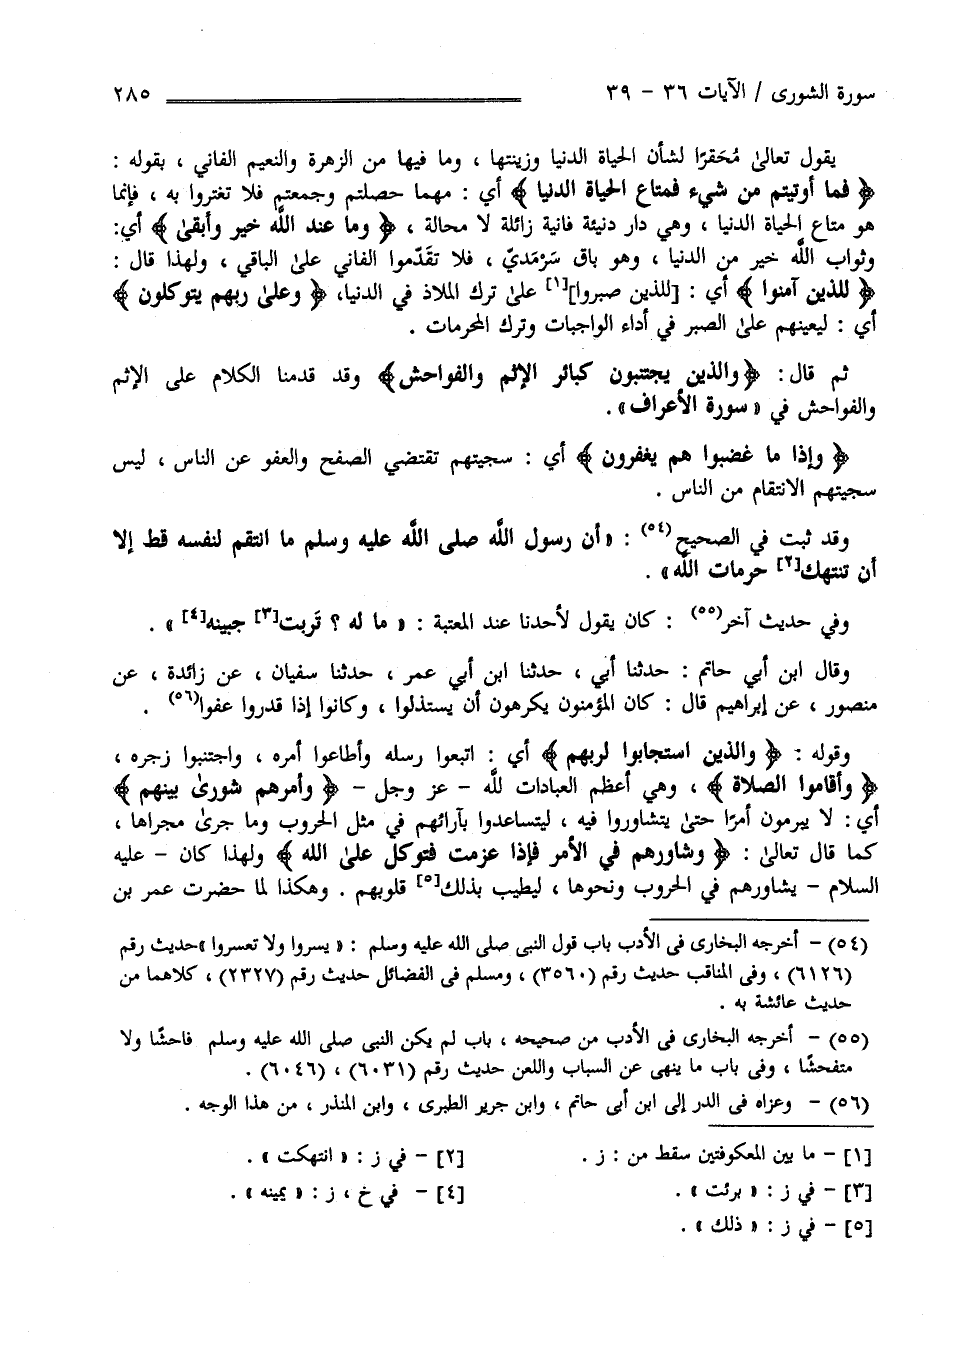 سورة الشورى / الآيات ٣٦ - ٣٩ ٢٨٥
يقول تعالىٰ مُحَقرًا لشأن الحياة الدنيا وزينتها ، وما فيها من الزهرة والنعيم الفاني ، بقوله :
﴿ فما أوتيتم من شيء فمتاع الحياة الدنيا ﴾ أي : مهما حصلتم وجمعتم فلا تغتروا به ، فإنما
هو متاع الحياة الدنيا ، وهي دار دنيئة فانية زائلة لا محالة ، ﴿ وما عند اللَّه خير وأبقىٰ ﴾ أي:
وثواب اللَّه خير من الدنيا ، وهو باق سَرْمَديّ ، فلا تقَدّموا الفاني علىٰ الباقي ، ولهذا قال :
﴿ للذين آمنوا ﴾ أي : [للذين صبروا][١] علىٰ ترك الملاذ في الدنيا، ﴿ وعلىٰ ربهم يتوكلون ﴾
أي : ليعينهم علىٰ الصبر في أداء الواجبات وترك المحرمات .
ثم قال: ﴿والذين يجتنبون كبائر الإثم والفواحش﴾ وقد قدمنا الكلام على الإثم
والفواحش في «سورة الأعراف».
﴿ وإذا ما غضبوا هم يغفرون ﴾ أي : سجيتهم تقتضي الصفح والعفو عن الناس ، ليس
سجيتهم الانتقام من الناس .
وقد ثبت في الصحيح(٥٤) : «أن رسول اللَّه صلى اللَّه عليه وسلم ما انتقم لنفسه قط إلا
أن تنتهك[٢] حرمات اللَّه» .
وفي حديث آخر(٥٥) : كان يقول لأحدنا عند المعتبة : « ما له ؟ تَربت[٣] جبينه[٤] » .
وقال ابن أبي حاتم : حدثنا أبي ، حدثنا ابن أبي عمر ، حدثنا سفيان ، عن زائدة ، عن
منصور ، عن إبراهيم قال : كان المؤمنون يكرهون أن يستذلوا ، وكانوا إذا قدروا عفوا(٥٦) .
وقوله : ﴿ والذين استجابوا لربهم ﴾ أي : اتبعوا رسله وأطاعوا أمره ، واجتنبوا زجره ،
﴿ وأقاموا الصلاة ﴾ ، وهي أعظم العبادات للَّه - عز وجل - ﴿ وأمرهم شورىٰ بينهم ﴾
أي : لا يبرمون أمرًا حتىٰ يتشاوروا فيه ، ليتساعدوا بآرائهم في مثل الحروب وما جرىٰ مجراها ،
كما قال تعالىٰ : ﴿ وشاورهم في الأمر فإذا عزمت فتوكل علىٰ الله ﴾ ولهذا كان - عليه
السلام - يشاورهم في الحروب ونحوها ، ليطيب بذلك[٥] قلوبهم . وهكذا لما حضرت عمر بن
(٥٤) - أخرجه البخارى فى الأدب باب قول النبى صلى الله عليه وسلم : « يسروا ولا تعسروا »حديث رقم
(٦١٢٦) ، وفى المناقب حديث رقم (٣٥٦٠) ، ومسلم فى الفضائل حديث رقم (٢٣٢٧) ، كلاهما من
حديث عائشة به .
(٥٥) - أخرجه البخارى فى الأدب من صحيحه ، باب لم يكن النبى صلى الله عليه وسلم فاحشًا ولا
متفحشًا ، وفى باب ما ينهى عن السباب واللعن حديث رقم (٦٠٣١) ، (٦٠٤٦) .
(٥٦) - وعزاه فى الدر إلى ابن أبى حاتم ، وابن جرير الطبرى ، وابن المنذر ، من هذا الوجه .
[١] - ما بين المعكوفتين سقط من : ز . [٢] - في ز : « انتهكت » .
[٣] - في ز : « برئت » . [٤] - في خ ، ز : « يمينه » .
[٥] - في ز : « ذلك » .